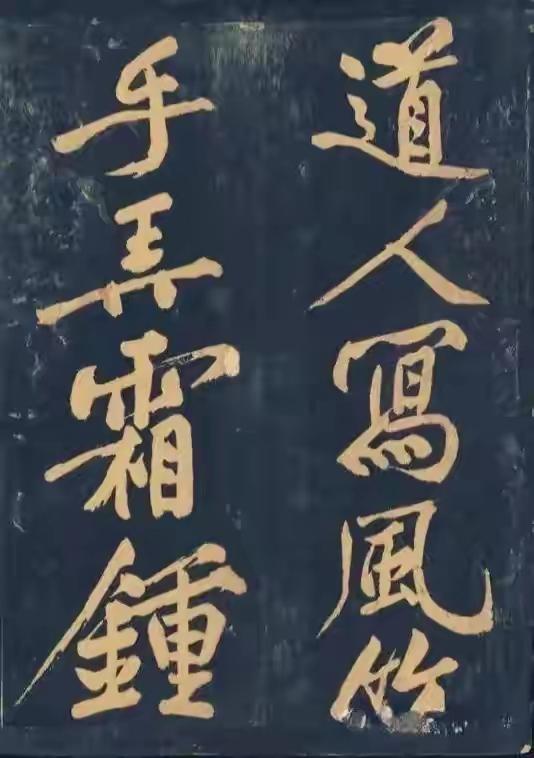 道人寫風竹
手弄霜鍾